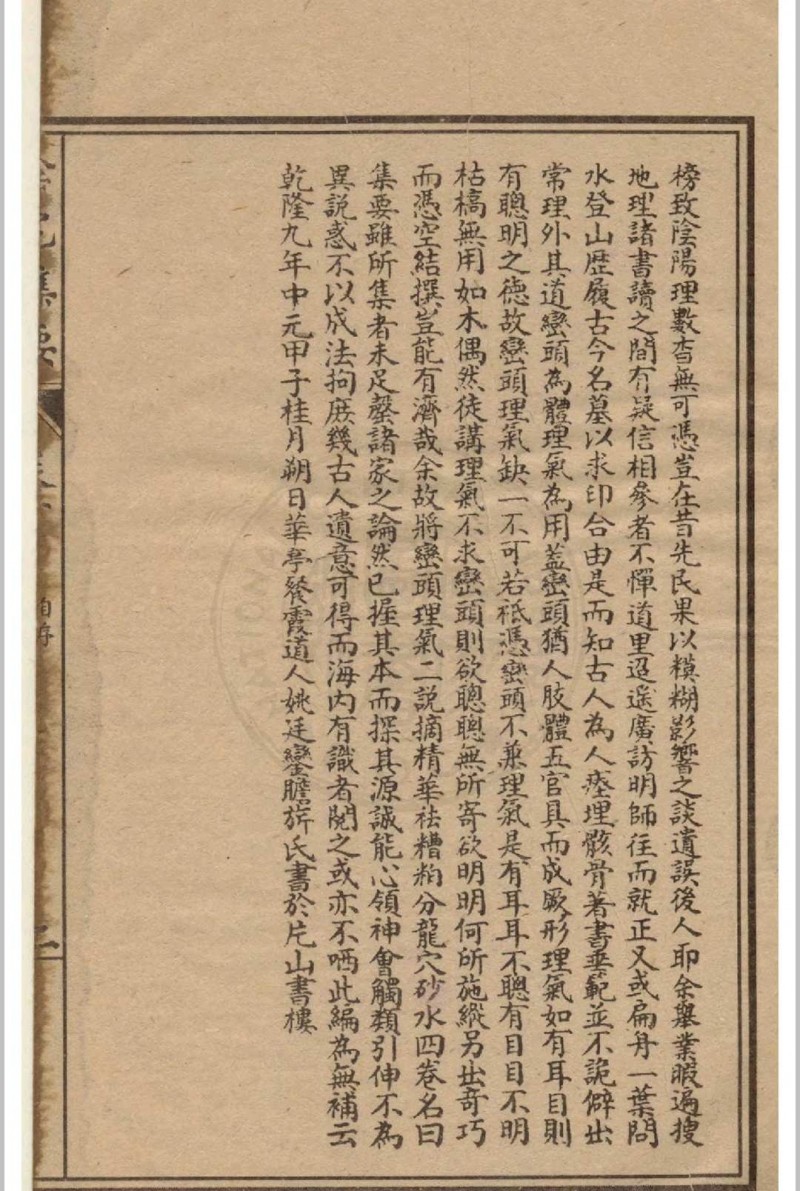 榜致陰陽理數杳無可憑豈在昔先民果以糢糊影響之談遺誤後人耶余舉業暇遍搜
地理諸書讀之間有疑信相參者不憚道里迢遙廣訪明師往而就正又或扁舟一葉問
水登山歷履古今名墓以求印合由是而知古人為人瘞埋骸骨著書垂範並不詭僻出
常理外其道巒頭為體理氣為用蓋巒頭猶人肢體五官具而成厥形理氣如有耳目則
有聰明之德故巒頭理氣缺一不可若祗憑巒頭不兼理氣是有耳耳不聰有目目不明
枯槁無用如木偶然徒講理氣不求巒頭則欲聰聰無所寄欲明明何所施縱另出奇巧
而憑空結撰豈能有濟哉余故將巒頭理氣二說摘精華祛糟粕分龍穴砂水四卷名曰
集要雖所集者未足罄諸家之論然已握其本而探其源誠能心領神會觸類引伸不為
異說惑不以成法拘庶幾古人遺意可得而海內有識者閱之或亦不哂此編為無補云
乾隆九年中元甲子桂月朔日華亭餐霞道人姚廷鑾瞻旂氏書於片山書樓
集要